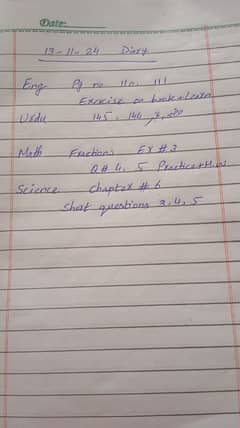 Date:
13-11-24 Diary
Eng Pg no 110, 111
Exercise on book + learn
Urdu 145, 144
Math Fractions EX # 3
Q# 4, 5 Practice + H.W
Science Chapter # 6
Short questions 3, 4, 5